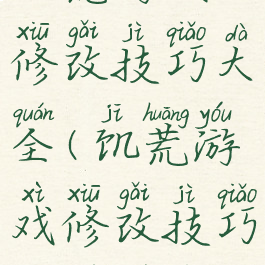 xiū gǎi jì qiǎo dà
修改技巧大
quán jī huāng yóu
全(饥荒游
xì xiū gǎi jì qiǎo
戏修改技巧